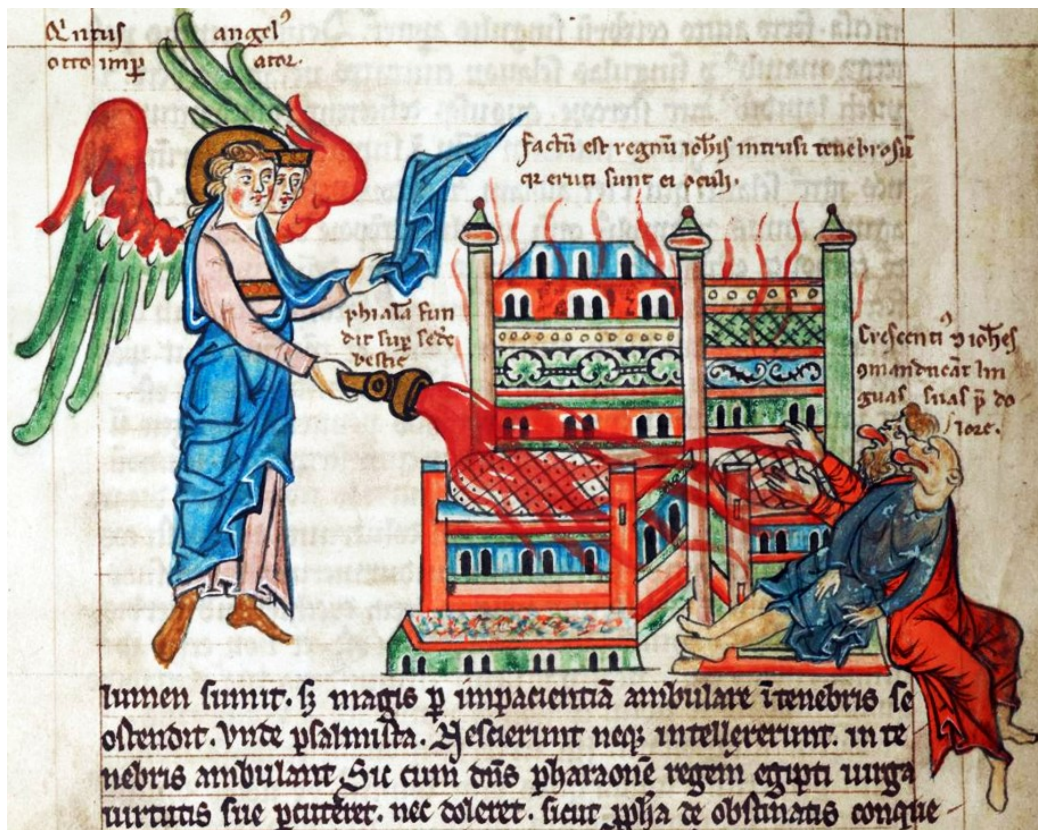 Q̇intus angel⁹
otto imꝑ ator.
factū est regnū ioh̄is intrusi tenebrosū
qꝛ eruti sunt ei oculi.
phialā fun
dit suꝑ sedē
bestie
Crescenti⁹ ⁊ ioh̄es
ꝯmanducāt lin
guas suas p̄ do
lore.
lumen sumit. sꝫ magis ꝑ impacientiā ambulare ī tenebris se
ostendit. Vnde psalmista. Nescierunt neqꝫ intellexerunt. in te
nebris ambulant. Sic cum dn̄s pharaonē regem egipti uirga
uirtutis sue ꝑcuteret. nec doleret. sicut ꝓph̄a de obstinatis conque